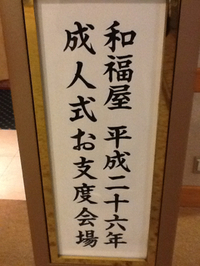 和福屋 平成二十六年
成人式お支度会場